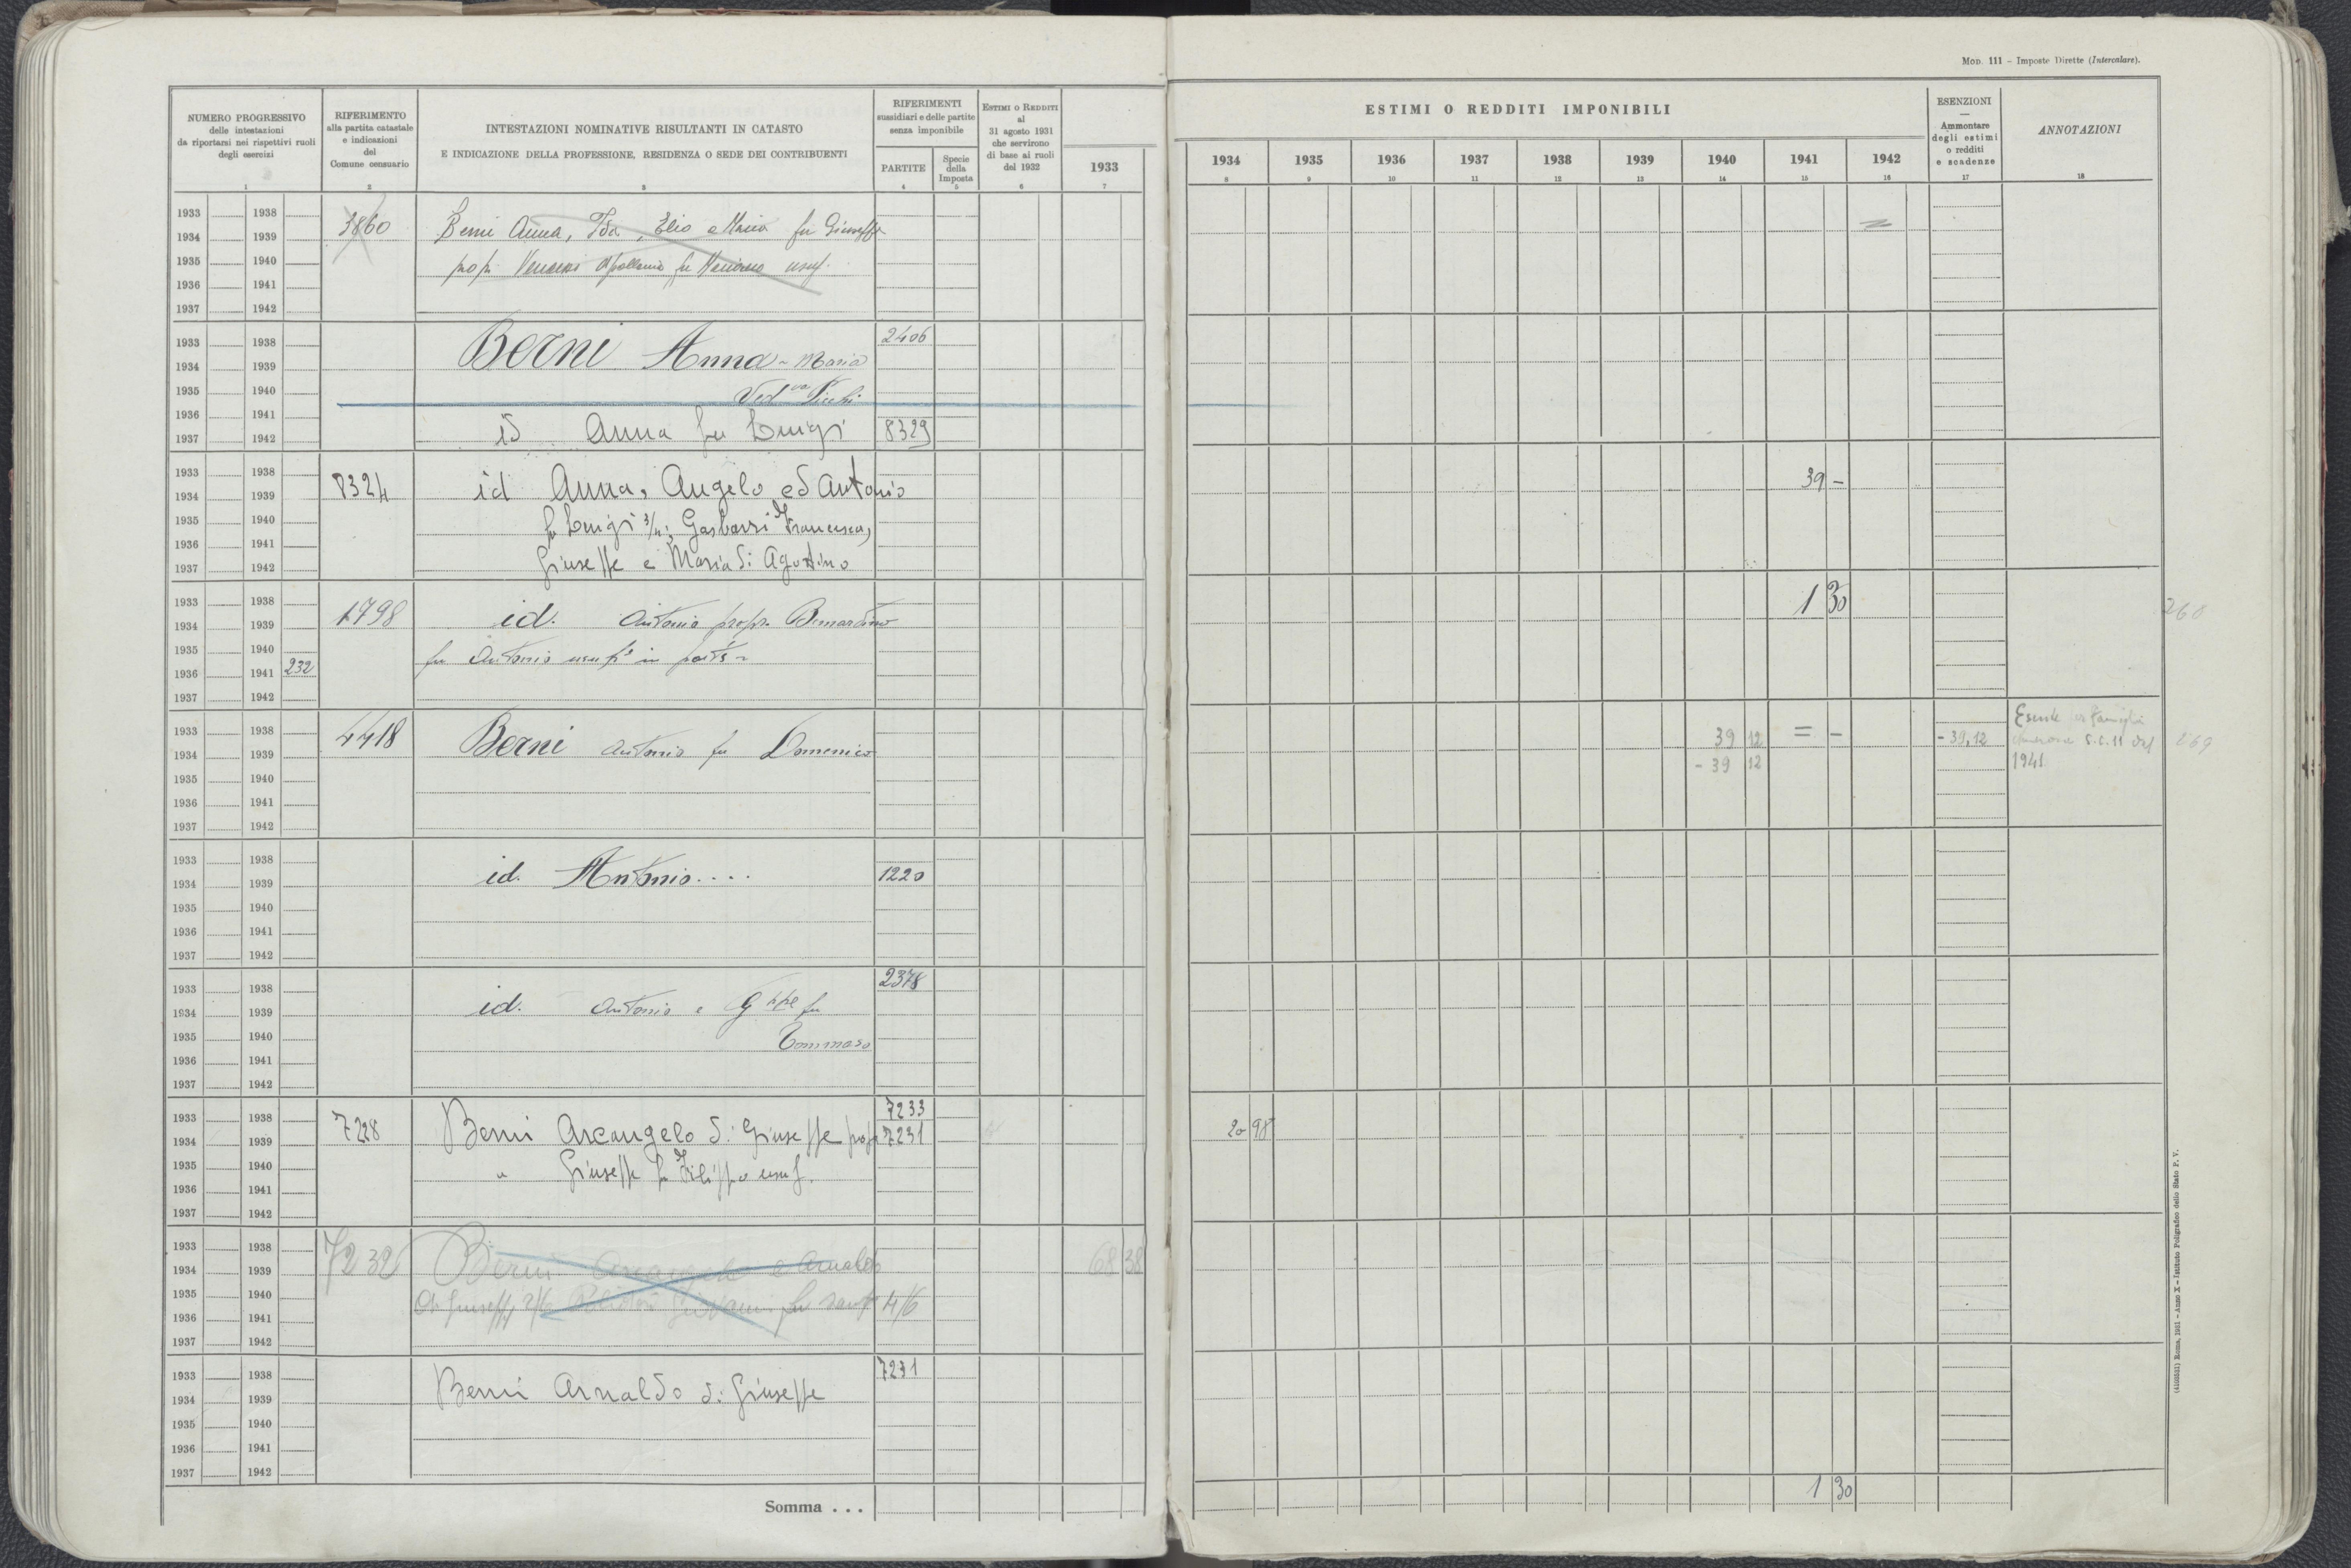 MOD. 111 – Imposte Dirette (Intercalare).
NUMERO PROGRESSIVO
delle intestazioni
da riportarsi nei rispettivi ruoli
degli esercizi
RIFERIMENTO
alla partita catastale
e indicazioni
del
Comune censuario
INTESTAZIONI NOMINATIVE RISULTANTI IN CATASTO
E INDICAZIONE DELLA PROFESSIONE, RESIDENZA O SEDE DEI CONTRIBUENTI
RIFERIMENTI
sussidiari e delle partite
senza imponibile
PARTITE
Specie
della
Imposta
ESTIMI O REDDITI
al
31 agosto 1931
che servirono
di base ai ruoli
del 1932
1933
ESTIMI O REDDITI IMPONIBILI
1934 1935 1936 1937 1938 1939 1940 1941 1942
ESENZIONI
—
Ammontare
degli estimi
o redditi
e scadenze
ANNOTAZIONI
1 2 3 4 5 6 7 8 9 10 11 12 13 14 15 16 17 18
1933 1938
1934 1939
1935 1940
1936 1941
1937 1942
3860 Berni Anna, Ida, Elio e Maria fu Giuseppe
prop. fu usuf.
1933 1938
1934 1939
1935 1940
1936 1941
1937 1942
Berni Anna - Maria 2406
Ved.va
id Anna fu Luigi 8329
1933 1938
1934 1939
1935 1940
1936 1941
1937 1942
8324 id Anna, Angelo ed Antonio 39 –
fu Luigi 3/4; Gasbarri Francesca,
Giuseppe e Maria di Agostino
1933 1938
1934 1939
1935 1940
1936 1941 232
1937 1942
1798 id. Antonio propr. Bernardino 1 30 268
fu Antonio usuf. in parte
1933 1938
1934 1939
1935 1940
1936 1941
1937 1942
4418 Berni Antonio fu Domenico 39 12 = – - 39,12
- 39 12
Esente famiglia
S.C. 11 del 269
1941
1933 1938
1934 1939
1935 1940
1936 1941
1937 1942
id. Antonio.... 1220
1933 1938
1934 1939
1935 1940
1936 1941
1937 1942
2378
id. Antonio e G.ppe fu
Tommaso
1933 1938
1934 1939
1935 1940
1936 1941
1937 1942
7233
7228 Berni Arcangelo di Giuseppe prop 7231 20 98
" Giuseppe fu Filippo usuf.
1933 1938
1934 1939
1935 1940
1936 1941
1937 1942
7232 Berni Arcangelo e Arnaldo 68 38
di Giuseppe 2/6 Giovanni fu 4/6
1933 1938
1934 1939
1935 1940
1936 1941
1937 1942
7231
Berni Arnaldo di Giuseppe
Somma . . . 1 30
Roma, 1931 – Anno X – Istituto Poligrafico dello Stato P. V.